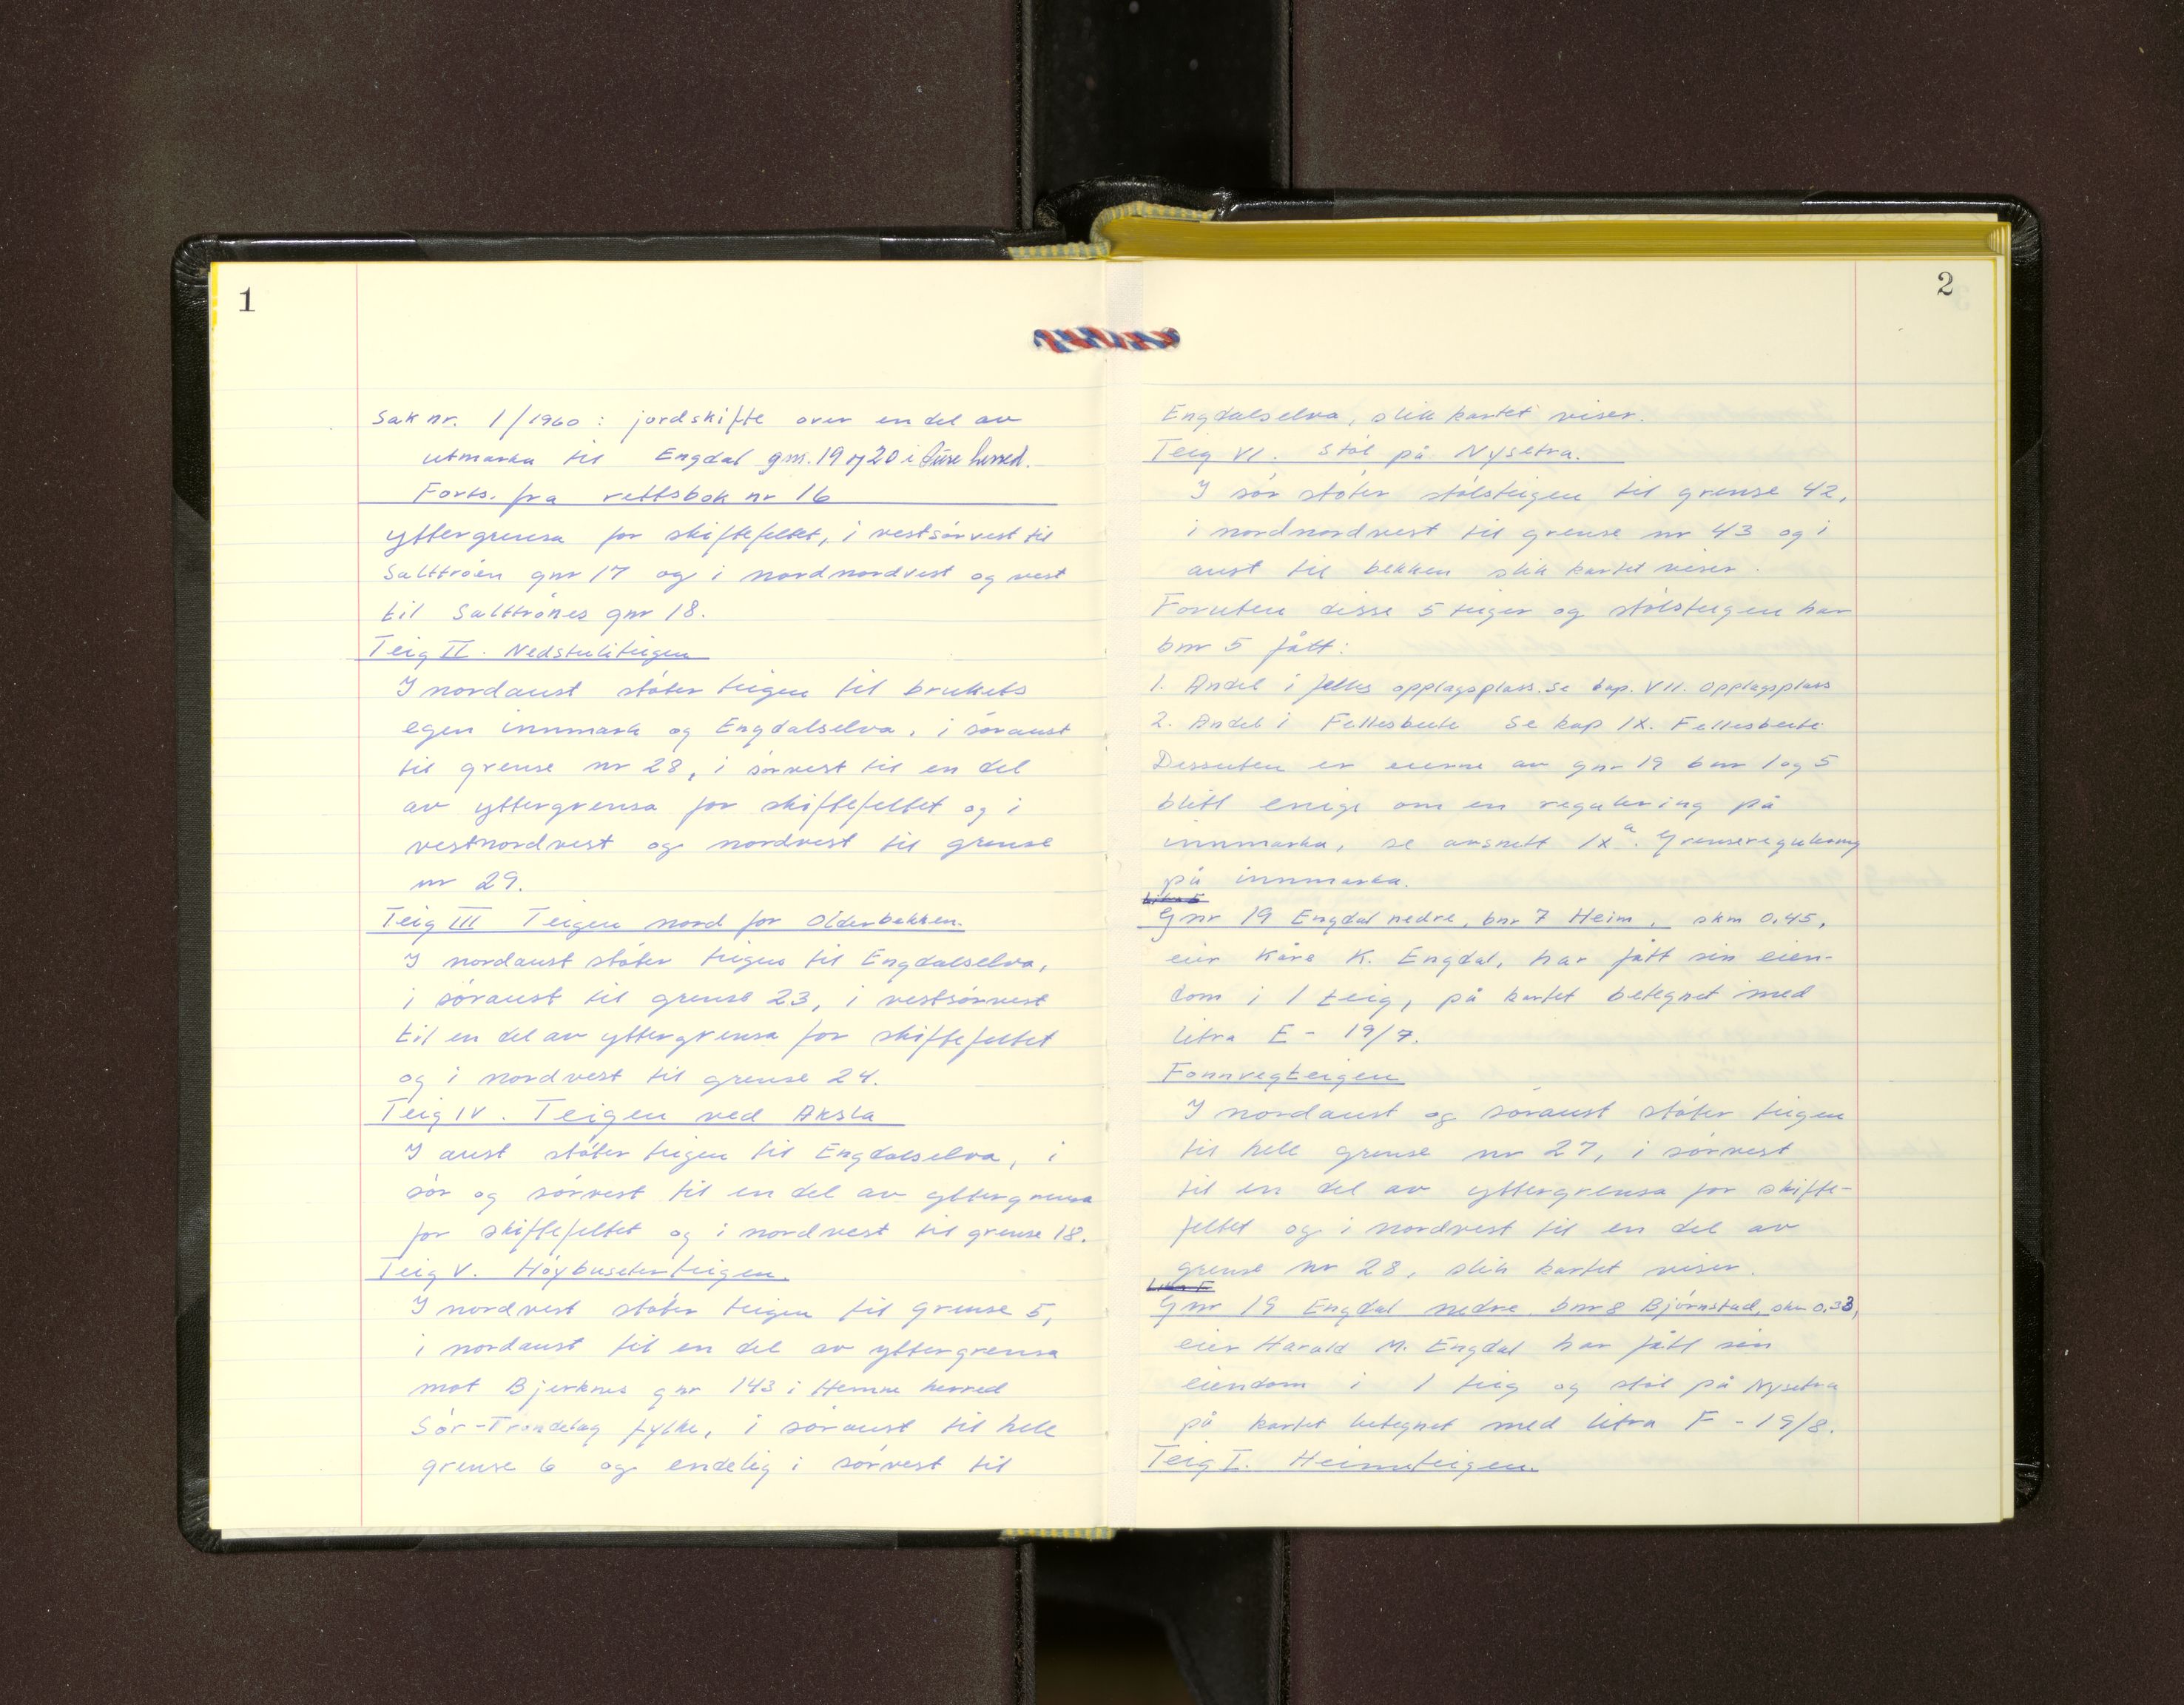 1
Sak nr. 1/1960: jordskifte over en del av
utmarka til Engdal gnr. 19 og 20 i Aure herred.
Forts. fra rettsbok nr 16
yttergrensa for skiftefeltet, i vestsørvest til
Salttrøen gnr 17 og i nordnordvest og vest
til Salttrønes gnr 18.
Teig II. Nedstuliteigen
I nordaust støter teigen til brukets
egen innmark og Engdalselva, i søraust
til grense nr 28, i sørvest til en del
av yttergrensa for skiftefeltet og i
vestnordvest og nordvest til grense
nr 29.
Teig III Teigen nord for Olderbekken.
I nordaust støter teigen til Engdalselva,
i søraust til grense 23, i vestsørvest
til en del av yttergrensa for skiftefeltet
og i nordvest til grense 24.
Teig IV. Teigen ved Aksla
I aust støter teigen til Engdalselva, i
sør og sørvest til en del av yttergrensa
for skiftefeltet og i nordvest til grense 18.
Teig V. Høybuseterteigen.
I nordvest støter teigen til grense 5,
i nordaust til en del av yttergrensa
mot Bjerknes gnr 143 i Hemne herred
Sør-Trøndelag fylke, i søraust til hele
grense 6 og endelig i sørvest til
2
Engdalselva, slik kartet viser.
Teig VI. Støl på Nysetra.
I sør støter stølsteigen til grense 42,
i nordnordvest til grense nr 43 og i
aust til bekken slik kartet viser.
Foruten disse 5 teiger og stølsteigen har
bnr 5 fått:
1. Andel i felles opplagsplass. Se kap. VII. Opplagsplass
2. Andel i Fellesbeite Se kap IX. Fellesbeite
Dessuten er eierne av gnr 19 bnr 1 og 5
blitt enige om en regulering på
innmarka, se avsnitt IXa. Grenseregulering
på innmarka.
Litra E
Gnr 19 Engdal nedre, bnr 7 Heim, skm 0,45,
eier Kåre K. Engdal, har fått sin eien-
dom i 1 teig, på kartet betegnet med
litra E - 19/7.
Fonnvegteigen
I nordaust og søraust støter teigen
til hele grense nr 27, i sørvest
til en del av yttergrensa for skifte-
feltet og i nordvest til en del av
grense nr 28, slik kartet viser.
Litra F
Gnr 19 Engdal nedre bnr 8 Bjørnstad, skm 0.33,
eier Harald M. Engdal har fått sin
eiendom i 1 teig og støl på Nysetra
på kartet betegnet med litra F - 19/8.
Teig I. Heimteigen.